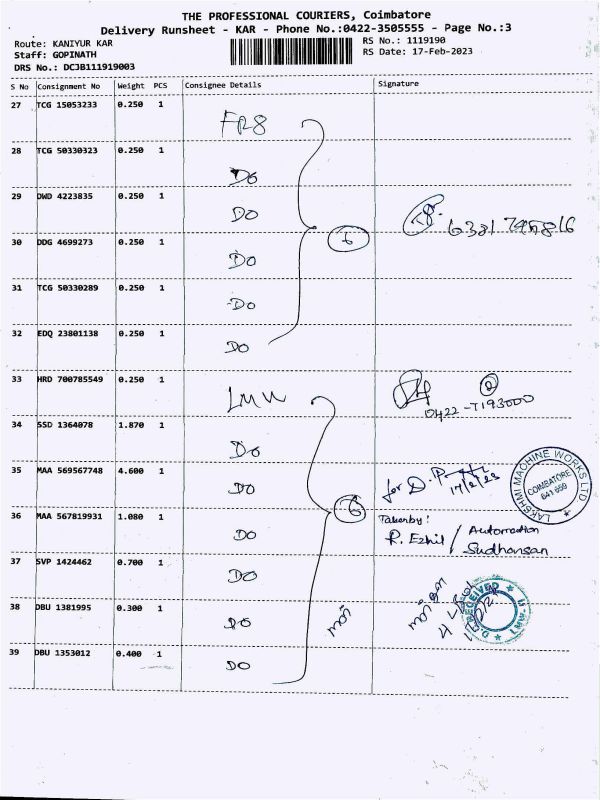 THE PROFESSIONAL COURIERS, Coimbatore
Delivery Runsheet - KAR - Phone No.:0422-3505555 - Page No.:3
Route: KANIYUR KAR
Staff: GOPINATH
DRS No.: DCJB111919003
RS No.: 1119190
RS Date: 17-Feb-2023
S No Consignment No Weight PCS Consignee Details Signature
27 TCG 15053233 0.250 1
28 TCG 50330323 0.250 1 DO
29 DWD 4223835 0.250 1 DO
30 DDG 4699273 0.250 1 DO
31 TCG 50330289 0.250 1 DO
32 EDQ 23801138 0.250 1 DO
6
33 HRD 700785549 0.250 1 LMW
2
0422-7193000
34 SSD 1364078 1.870 1 DO
35 MAA 569567748 4.600 1 DO
for D.
17/2/23
LAKSHMI MACHINE WORKS LTD
COIMBATORE
641 659
36 MAA 567819931 1.080 1 DO
6
Taken by:
R. Ezhil / Automation
Sudhansan
37 SVP 1424462 0.700 1 DO
38 DBU 1381995 0.300 1 DO
RECEIVED
39 DBU 1353012 0.400 1 DO